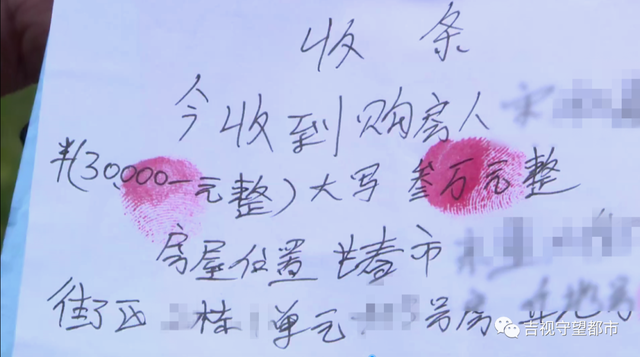 收条
今收到购房人
(30,000—元整)大写 叁万元整
房屋位置 长春市
街区 栋 单元 号房
吉视守望都市